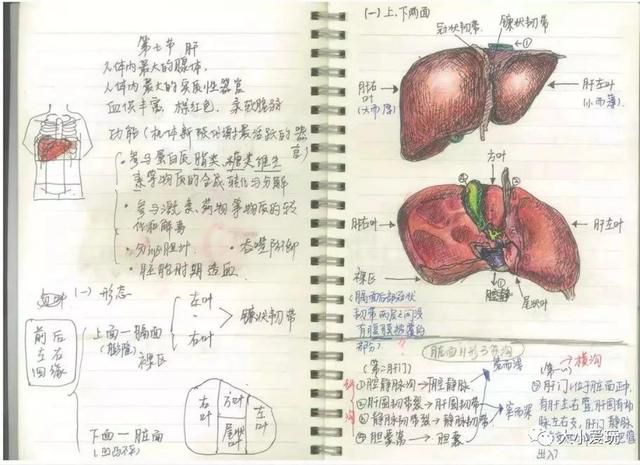 第七节 肝
人体内最大的腺体.
人体内最大的实质性器官
血供丰富 棕红色. 柔软脆弱
功能(机体新陈代谢最活跃的器官)
• 参与蛋白质 脂类、糖类维生
素等物质的合成、转化与分解
• 参与激素、药物等物质的转
化和解毒
• 分泌胆汁 • 吞噬防御
• 胚胎时期造血.
(一) 形态
前后
左右
四缘
上面—膈面
(膨隆)
裸区
左叶
右叶
镰状韧带
下面—脏面
(凹凸不平)
右叶
方叶
尾状叶
左叶
(一) 上、下两面
冠状韧带
镰状韧带
①
肝右叶
(大而厚)
肝左叶
(小而薄)
方叶
肝右叶
肝左叶
裸区
腔静
尾状叶
(膈面后部冠状
韧带两层之间没
有腹膜被覆的
部分)
脏面H形3条沟
(第二肝门)
①腔静脉沟→腔静脉
②肝圆韧带裂→肝圆韧带
③静脉韧带裂→静脉韧带
④胆囊窝→胆囊
宽而浅
窄而深
(第一)
横沟
肝门:位于脏面正中,
有肝左右管,肝固有动
脉左右支,肝门静脉
出入
大小爱玩